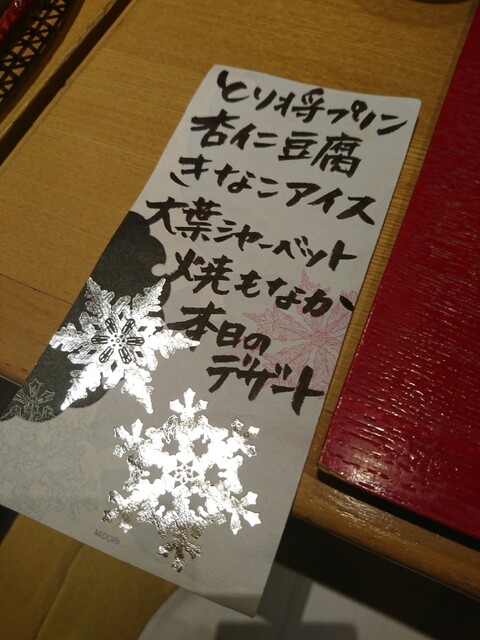 とり将プリン
杏仁豆腐
きなこアイス
大葉シャーベット
焼もなか
本日の
デザート
MIDORI